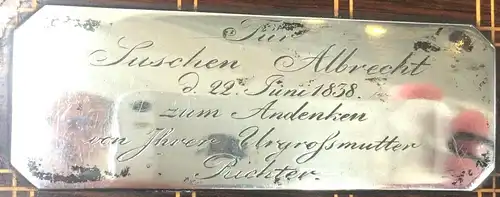 Für
Suschen Albrecht
d. 22. Juni 1838.
zum Andenken
von Ihrer Urgroßmutter
Richter.